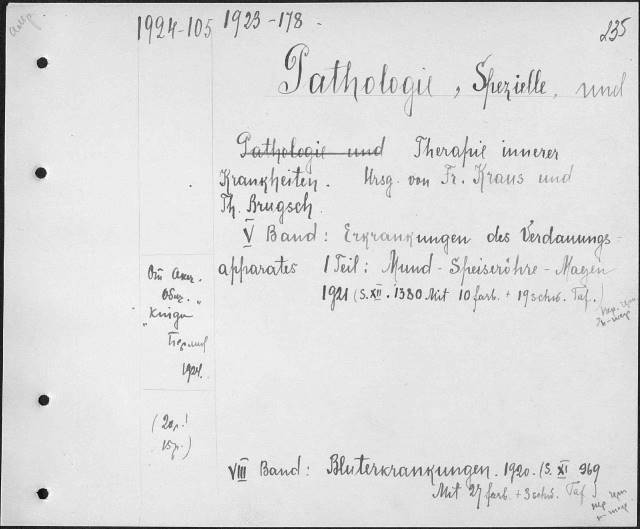 1924-105 1923-178.
235
Pathologie, Spezielle, und
Pathologie und Therapie innerer
Krankheiten. Hrsg. von Fr. Kraus und
Th. Brugsch.
V Band: Erkrankungen des Verdauungs-
apparates 1 Teil: Mund-Speiseröhre-Magen
1921 (S. XII. 1380 Mit 10 farb. + 19 schw. Taf.)
От Акц.
Общ.
"Книга"
Берлин
1924.
(2ор.!
15р.)
VIII Band: Bluterkrankungen. 1920. (S. XI 969
Mit 27 farb. + 3 schw. Taf.)